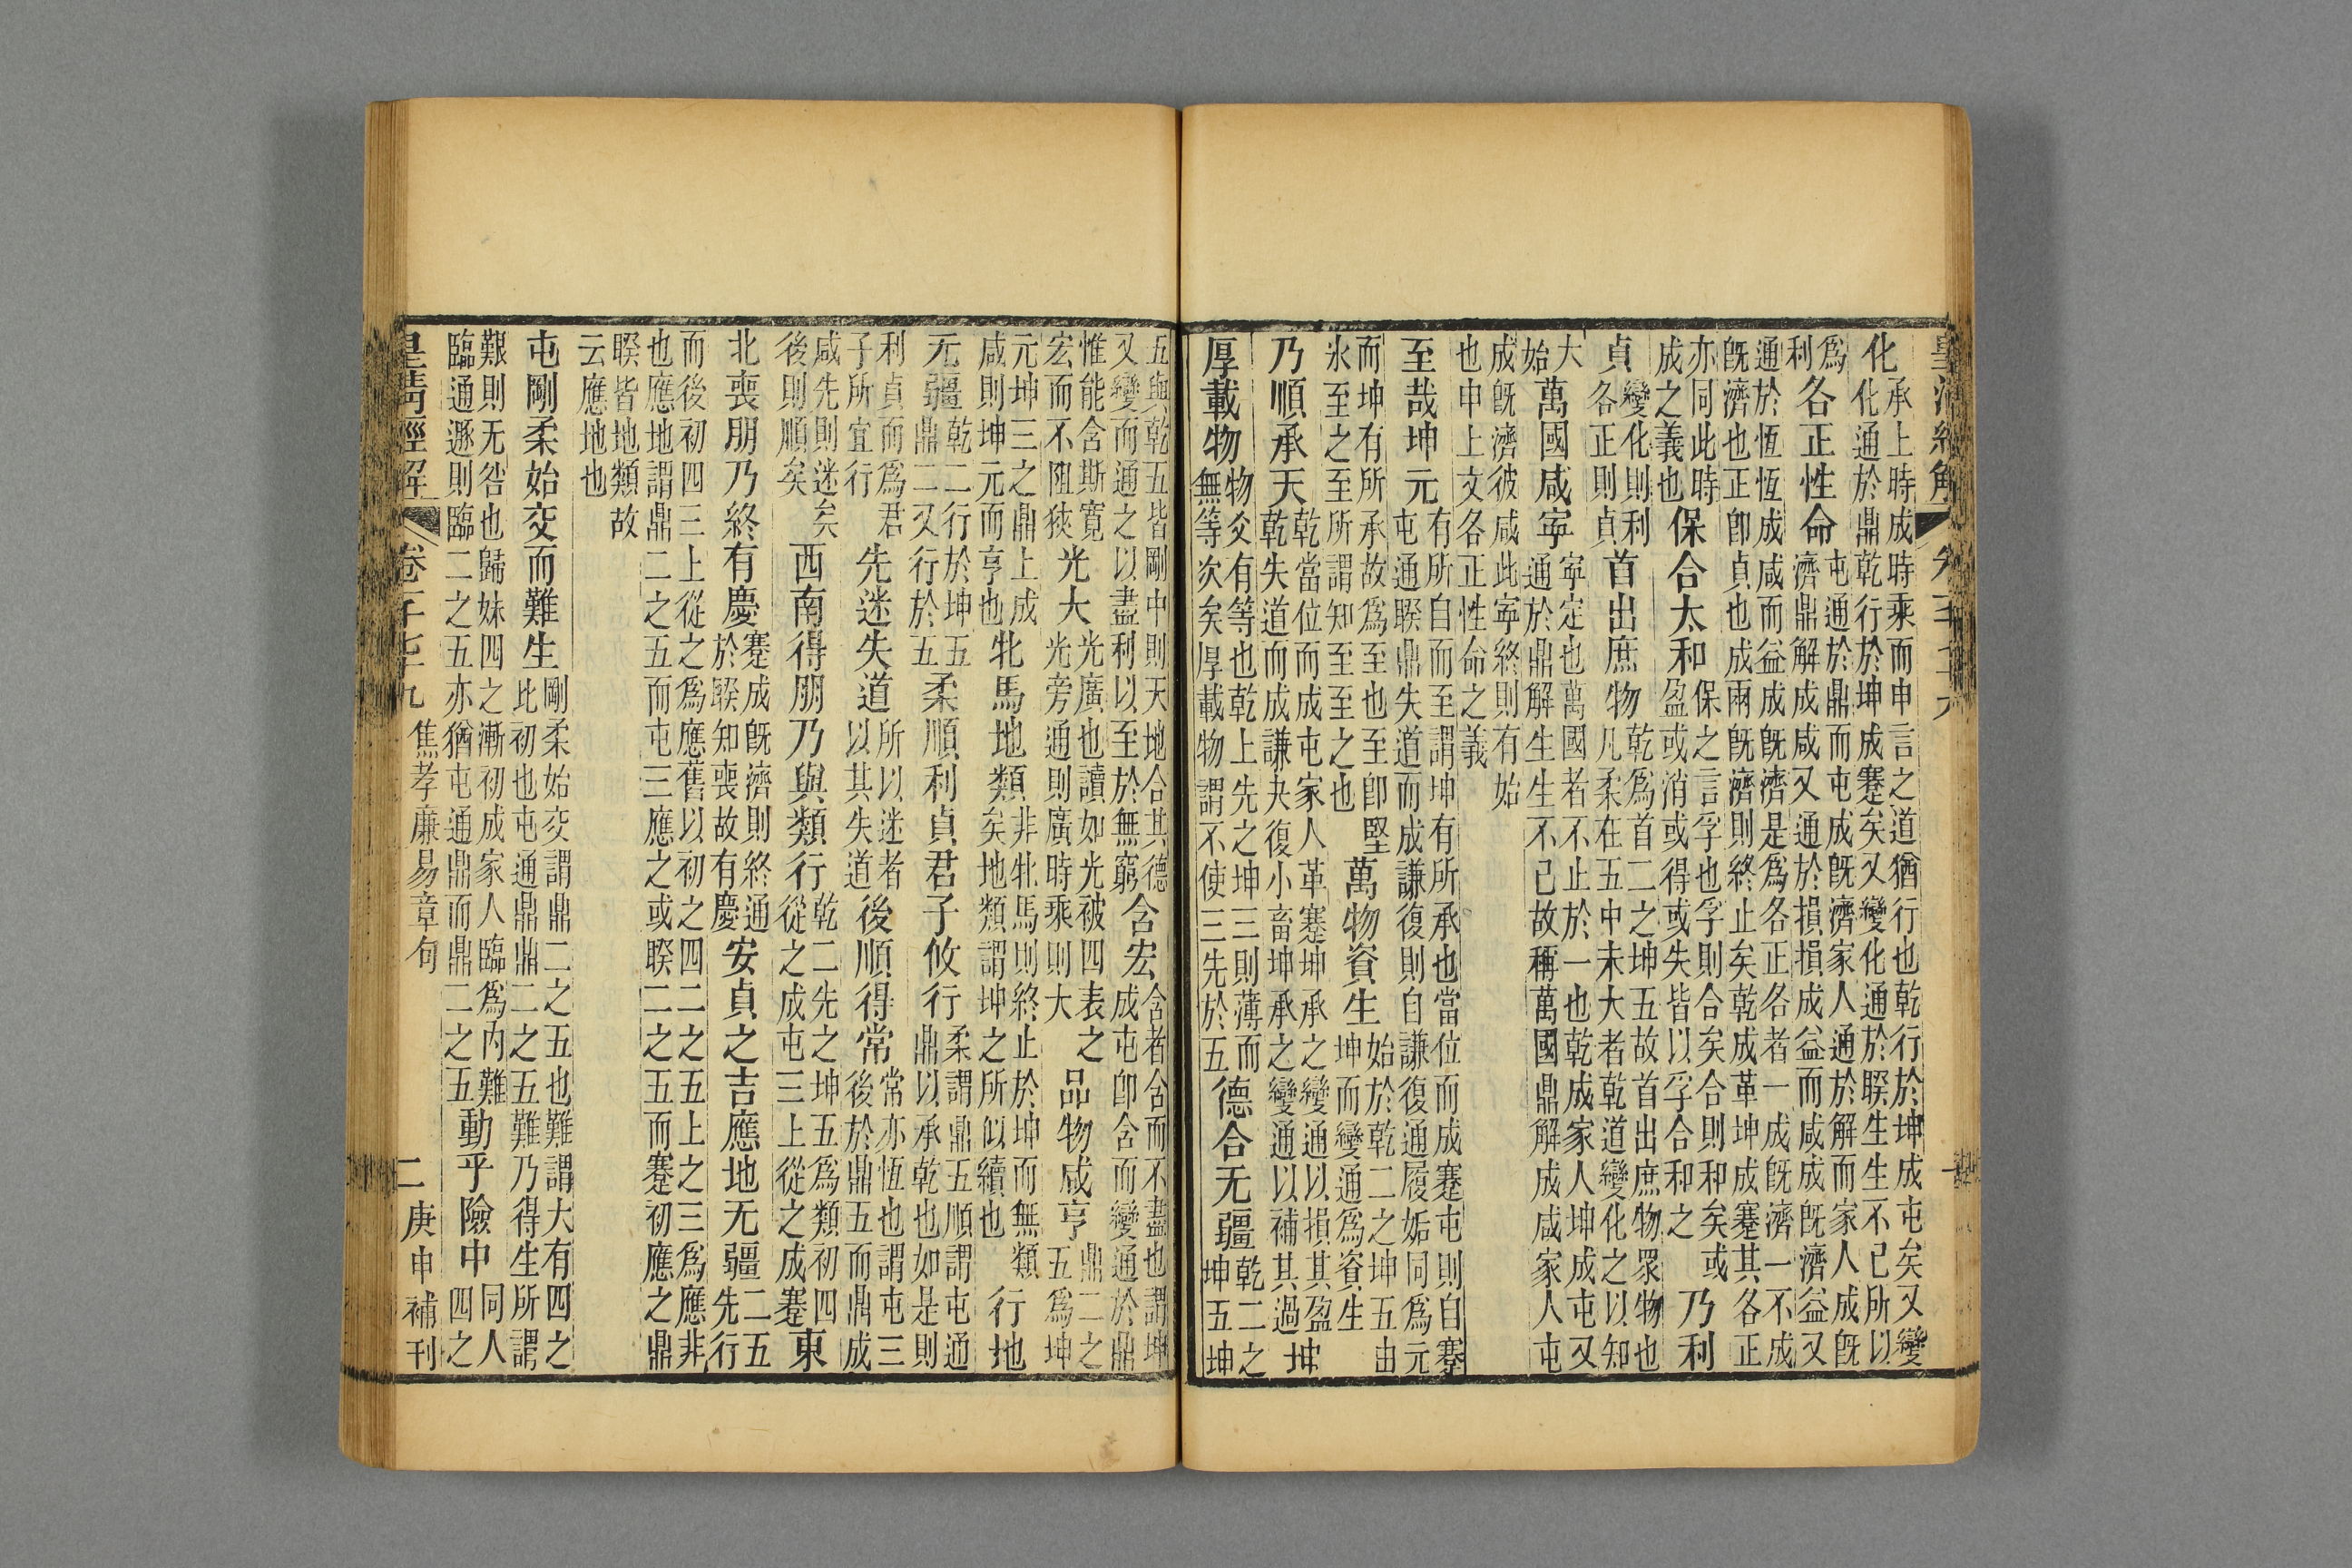 皇清經解
化承上時成時乘而申言之道猶行也乾行於坤成屯矣又變化通於鼎乾行於坤成蹇矣又變化通於睽生生不已所以
爲利各正性命屯通於鼎而屯成旣濟家人通於解而家人成旣濟鼎解成咸又通於損損成益而咸成旣濟益又
通於恆恆成咸而益成旣濟是爲各正各者一成旣濟一不成旣濟也正卽貞也成兩旣濟則終止矣乾成革坤成蹇其各正
亦同此時成之義也保合太和保之言孚也孚則合矣合則和矣或盈或消或得或失皆以孚合和之乃利
貞變化則利各正則貞首出庶物乾爲首二之坤五故首出庶物眾物也凡柔在五中未大者乾道變化之以知
大始萬國咸寧寧定也萬國者不止於一也乾成家人坤成屯又通於鼎解生生不已故稱萬國鼎解成咸家人屯
成旣濟彼咸此寧終則有始也申上文各正性命之義
至哉坤元有所自而至謂坤有所承也當位而成蹇屯則自蹇屯通睽鼎失道而成謙復則自謙復通履姤同爲元
而坤有所承故爲至也至卽堅氷至之至所謂知至至之也萬物資生始於乾二之坤五由坤而變通爲資生
乃順承天乾當位而成屯家人革蹇坤承之變通以損其盈乾失道而成謙夬復小畜坤承之變通以補其過坤
厚載物物爻有等也乾上先之坤三則薄而無等次矣厚載物謂不使三先於五德合无疆乾二之坤五坤
五與乾五皆剛中則天地合其德又變而通之以盡利以至於無窮含宏含者含而不盡也謂坤成屯卽含而變通於鼎
惟能含斯寬宏而不阻狹光大光廣也讀如光被四表之光旁通則廣時乘則大品物咸亨鼎二之五爲坤
元坤三之鼎上成咸則坤元而亨也牝馬地類非牝馬則終止於坤而無類矣地類謂坤之所似續也行地
无疆乾二行於坤五鼎二又行於五柔順利貞君子攸行柔謂鼎五順謂屯通鼎以承乾也如是則
利貞而爲君子所宜行先迷失道所以迷者以其失道後順得常常亦恆也謂屯三後於鼎五而鼎成
咸先則迷矣後則順矣西南得朋乃與類行乾二先之坤五爲類初四從之成屯三上從之成蹇東
北喪朋乃終有慶蹇成旣濟則終通於睽知喪故有慶安貞之吉應地无疆二五先行
而後初四三上從之爲應舊以初之四二之五上之三爲應非也應地謂鼎二之五而屯三應之或睽二之五而蹇初應之鼎
睽皆地類故云應地也
屯剛柔始交而難生剛柔始交謂鼎二之五也難謂大有四之比初也屯通鼎鼎二之五難乃得生所謂
艱則无咎也歸妹四之漸初成家人臨爲內難臨通遯則臨二之五亦猶屯通鼎而鼎二之五動乎險中同人四之
皇淸經解 卷千七十九 焦孝廉易章句 二 庚申補刊